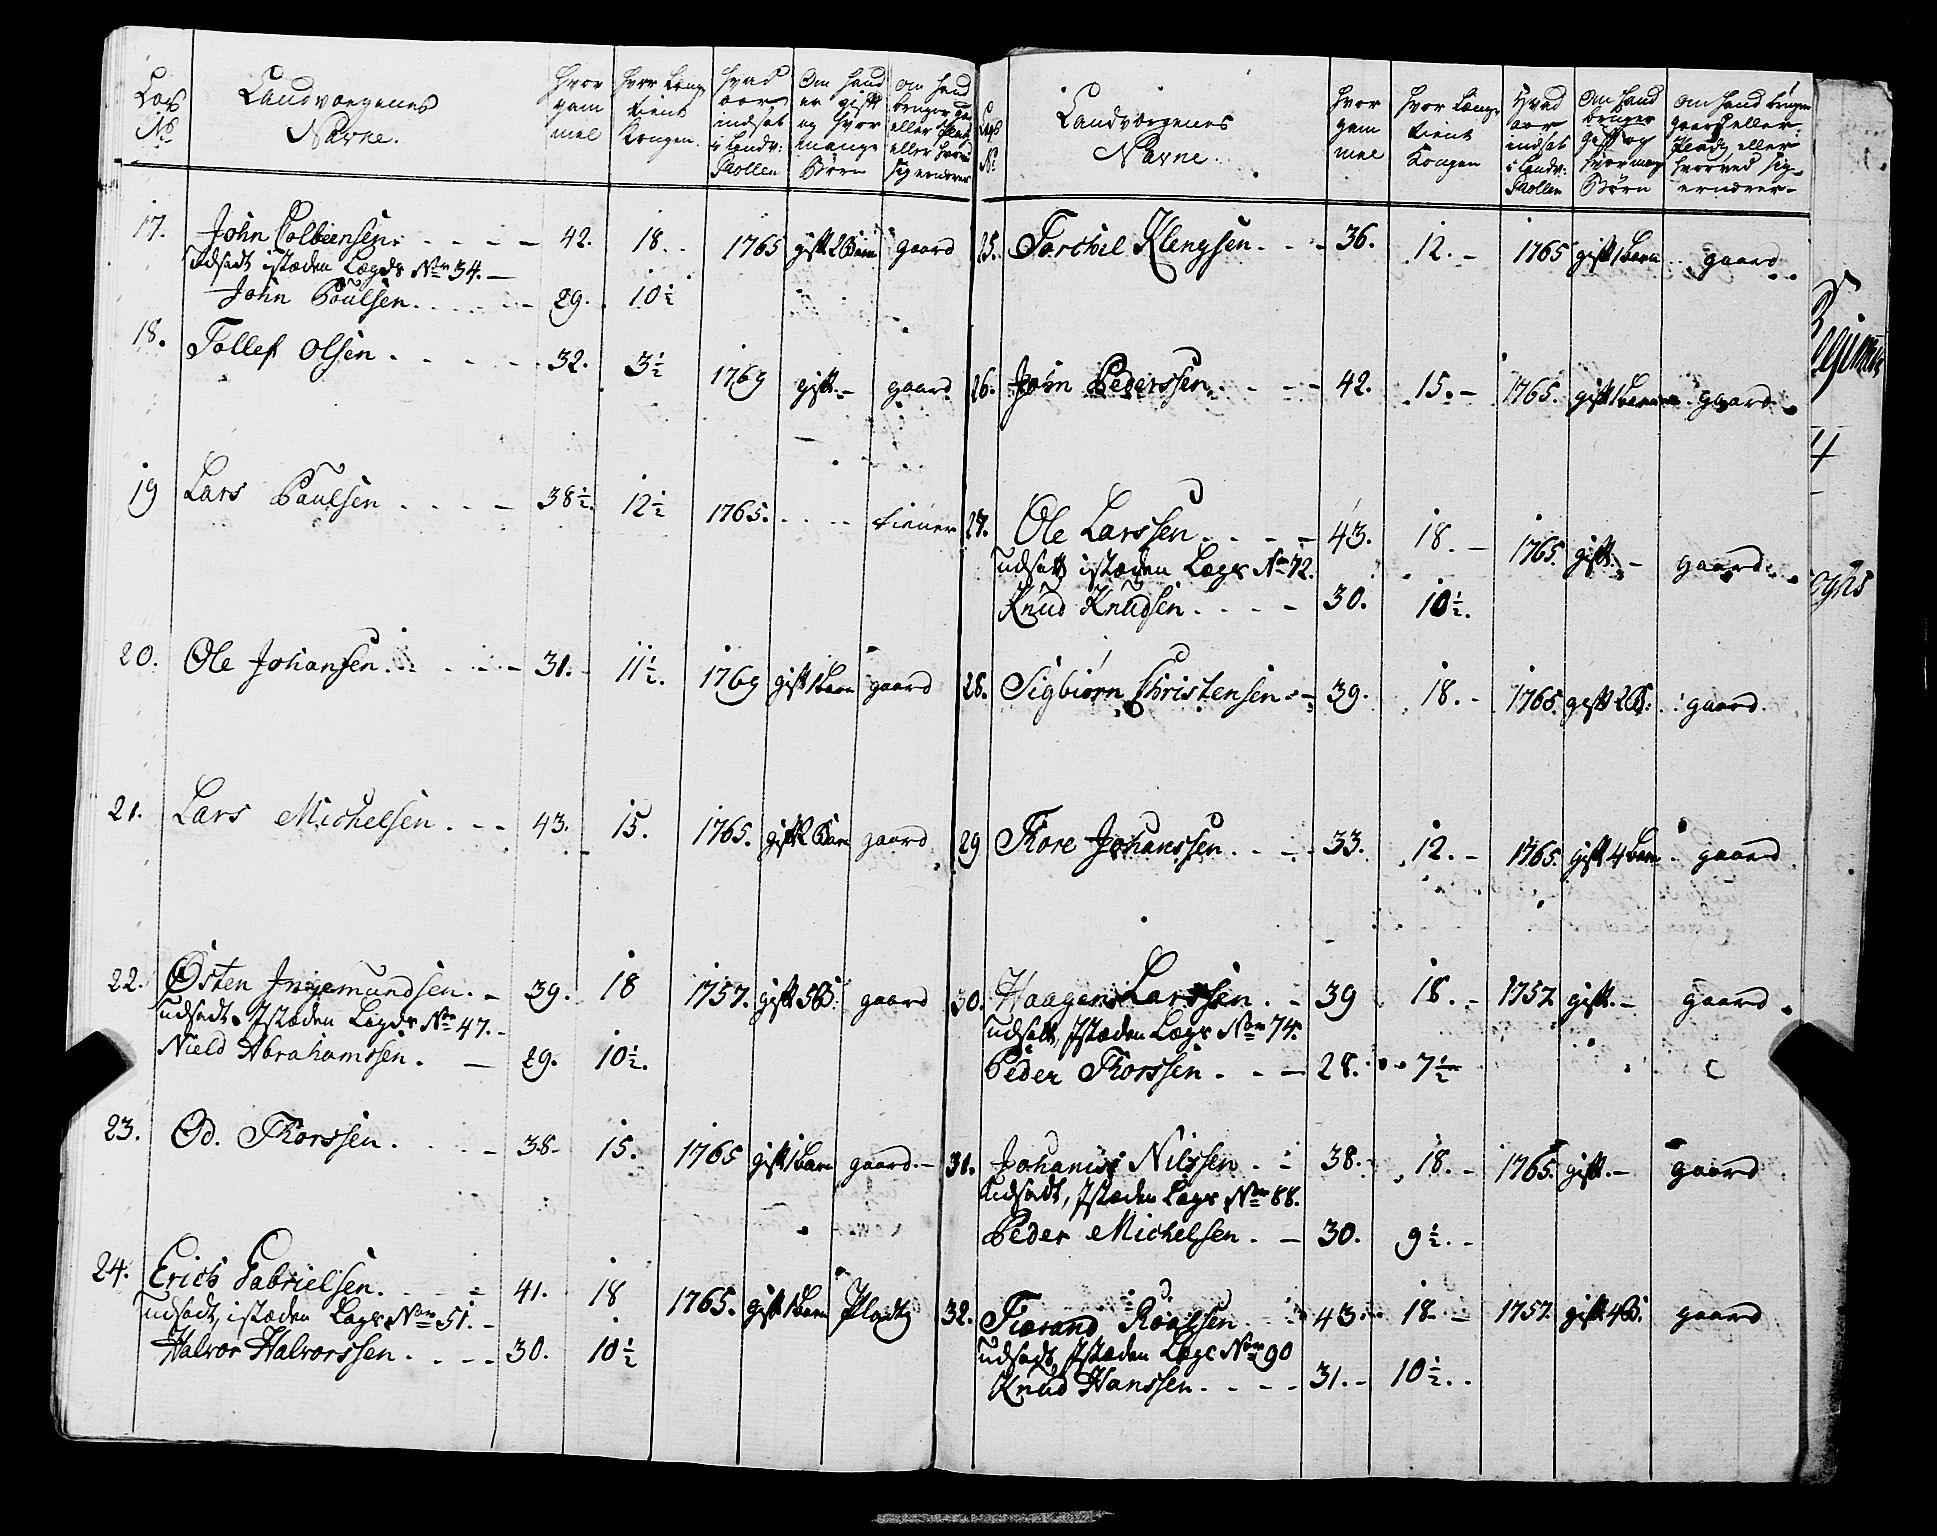 Lægs No | Landværgenes Navne. | hvor gammel | hvor længe tient Kongen. | hvad aar indsat i Landv: Rollen | Om hand er gift og hvor mange Børn | Om hand bruger gaard eller Plads eller hvorved sig ernærer
17. John Colbiensen. 42. 18. 1765 gift 2 Børn gaard
udsadt istæden Lægds No 34.
John Poulsen. 29. 10½
18. Tollef Olsen 32. 3½ 1769 gift gaard
19 Lars Paulsen 38½. 12½ 1765. tiener
20. Ole Johansen. 31. 11½. 1769 gift 1 Barn gaard
21. Lars Michelsen. 43. 15. 1765. gift 2 Børn gaard
22. Østen Ingemundsen. 39. 18 1757. gift 5 B. gaard
udsadt Istæden Lægds No 47.
Nield Abrahamssen. 29. 10½.
23. Od. Thorssen. 38. 15. 1765 gift 1 Barn gaard.
24. Erich Gabrielsen. 41. 18 1765. gift 1 Barn Plads
udsadt, istæden Lægs No 51.
Halvor Halvorssen. 30. 10½
Lægs No | Landværgenes Navne. | hvor gammel | hvor længe tient Kongen | Hvad aar indsat i Landv: Rollen | Om hand gift og hvor mange Børn | Om hand bruger gaard eller Plads eller hvorved sig ernærer
25. Torchil Klengsen. 36. 12. 1765 gift 1 Barn gaard
26. John Pederssen. 42. 15. 1765. gift 1 Barn gaard.
27. Ole Larssen. 43. 18. 1765. gift. gaard.
udsatt istæden Lægs No 72.
Knud Knudsen. 30. 10½.
28. Sigbiørn Christensen 39. 18. 1765. gift 2 B: gaard.
29 Thore Johanssen. 33. 12. 1765. gift 4 Børn gaard
30. Haagen Larssen. 39 18. 1757. gift. gaard
udsatt, Istæden Lægs No 74.
Peder Thorssen. 28. 7½
31. Johanis Nilssen. 38. 18. 1765. gift. gaard
udsadt, Istæden Lægs No 88.
Peder Michelsen. 30. 9½.
32. Tiærand Roalsen. 43. 18. 1757. gift 4 B. gaard
udsadt, Istæden Lægs No 90
Knud Hanssen. 31. 10½.